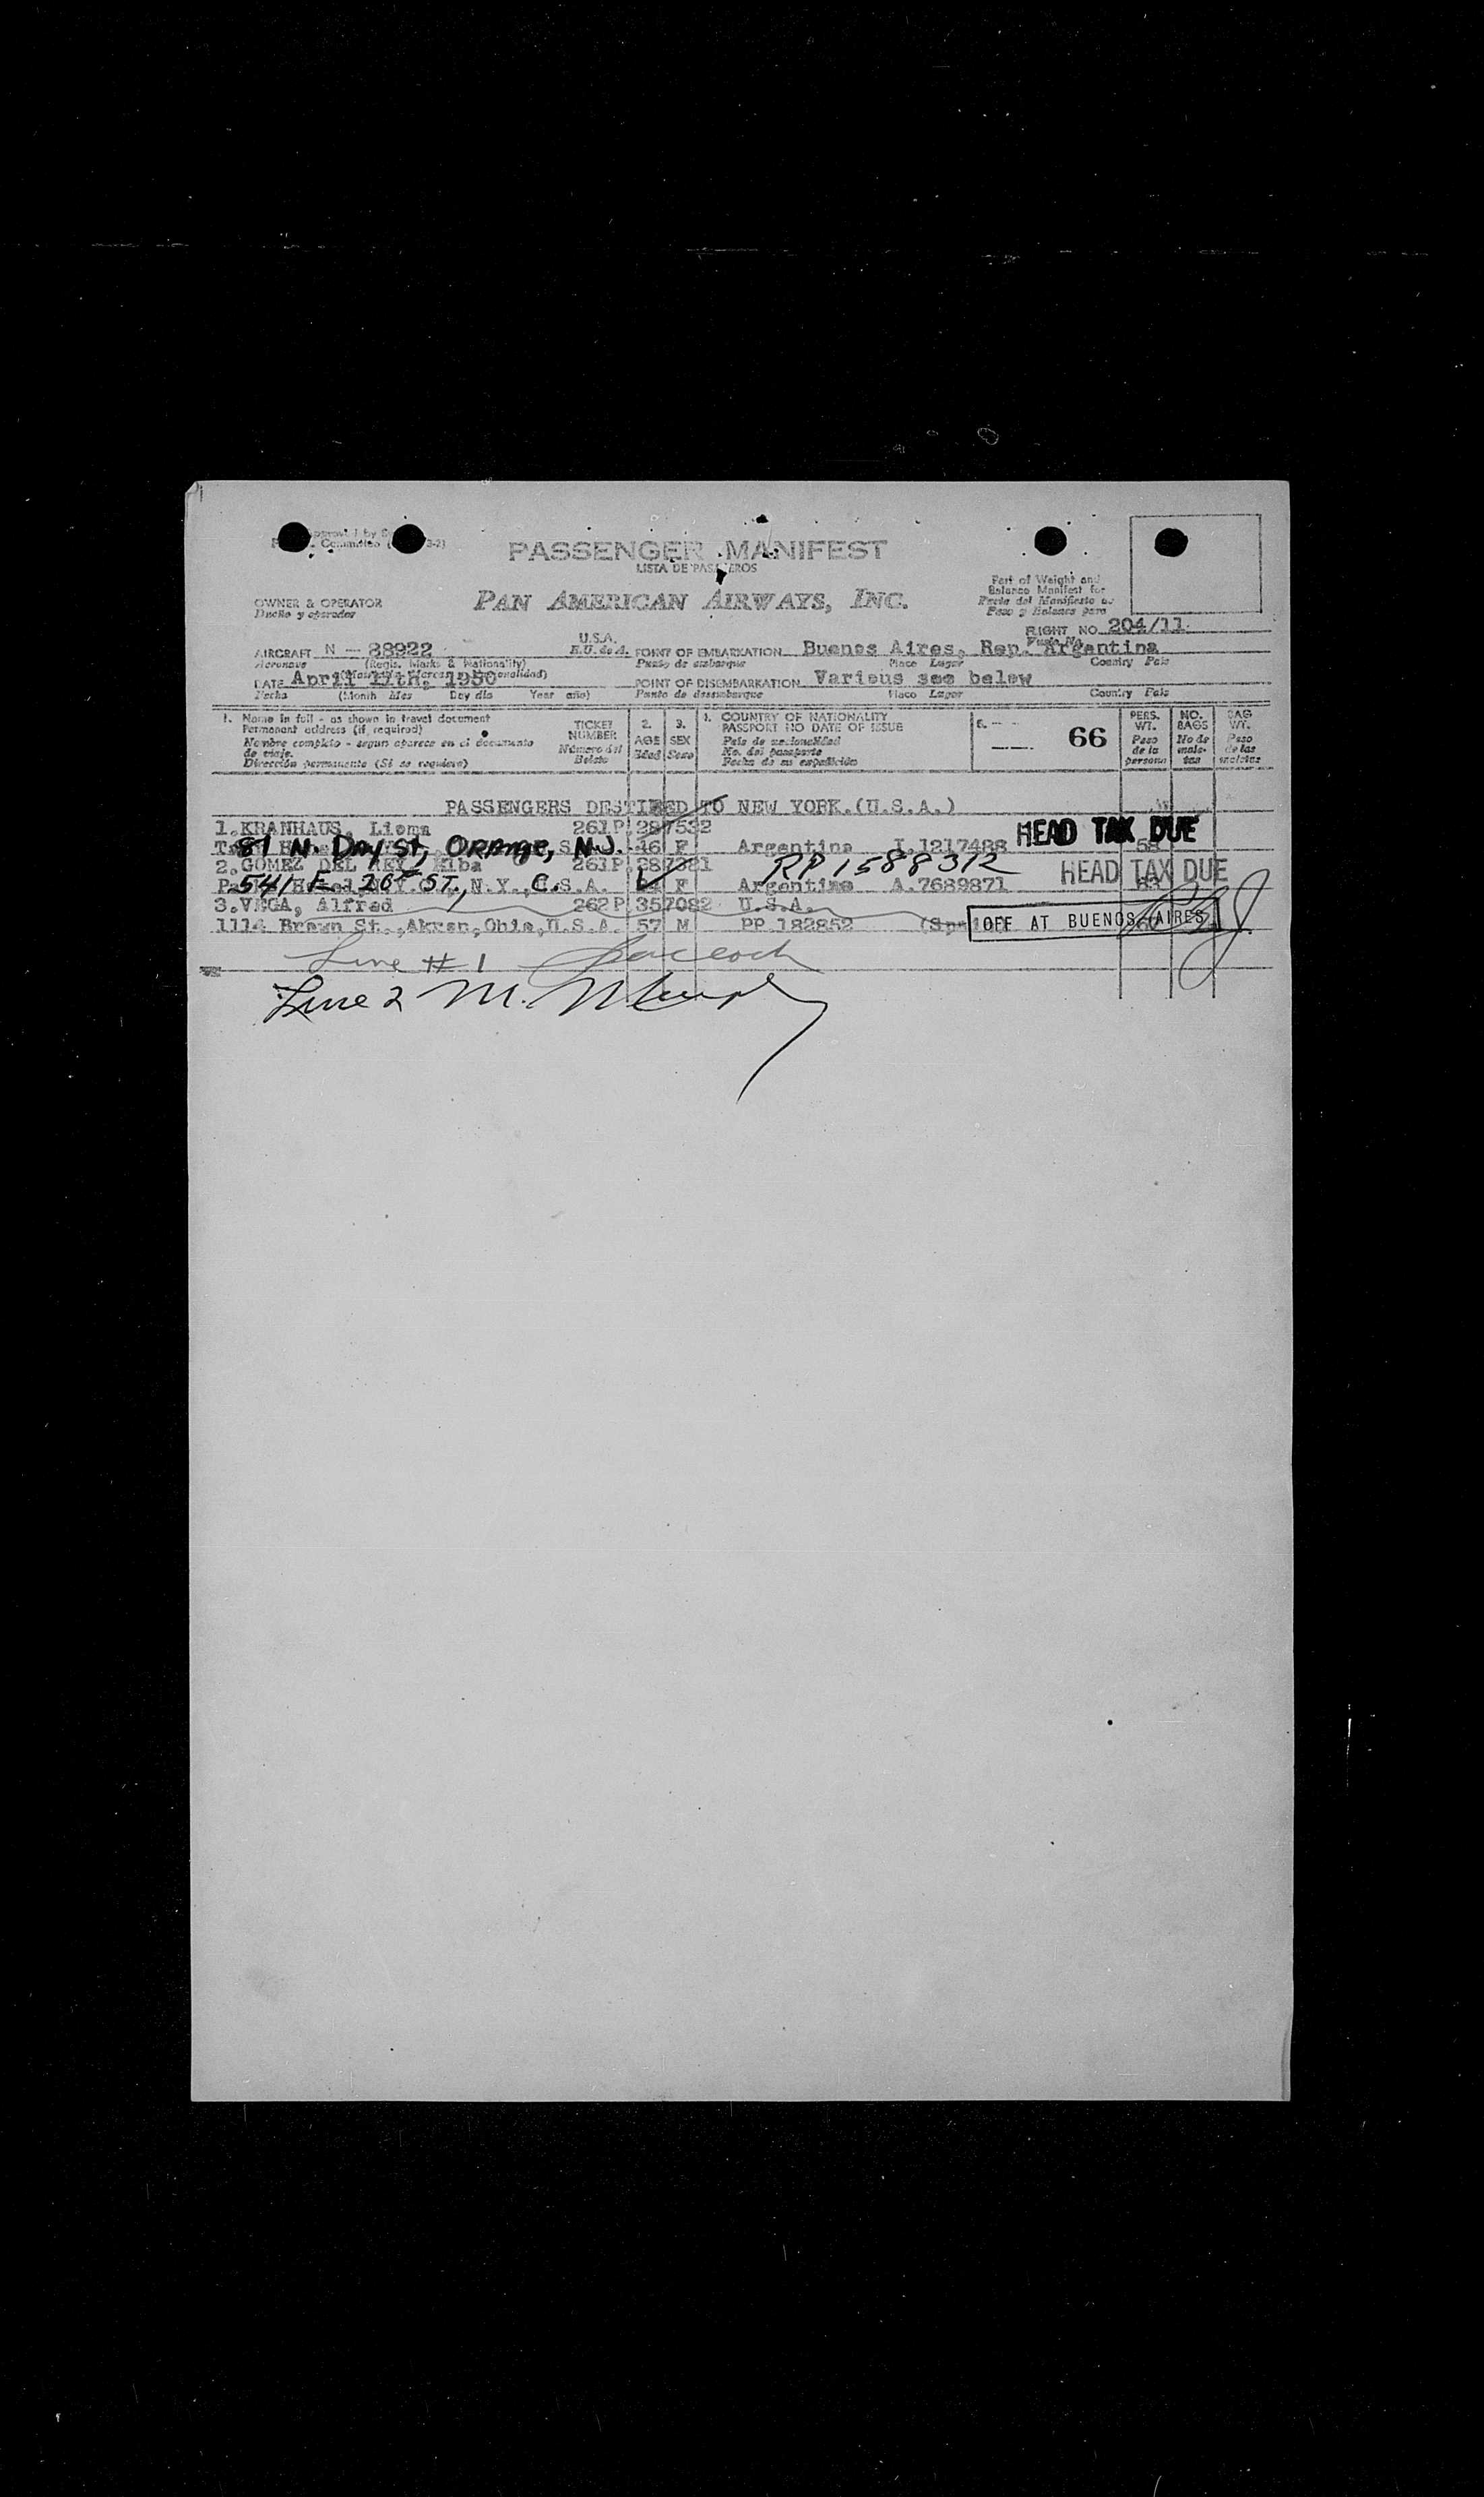 PASSENGER MANIFEST
LISTA DE PASAJEROS
PAN AMERICAN AIRWAYS, INC.
OWNER & OPERATOR
Dueño y operador
Part of Weight and
Balance Manifest for
Parte del Manifiesto de
Peso y Balance para
FLIGHT NO. 204/11
AIRCRAFT N - 88922 U.S.A.
E.U. de A.
Aeronave (Regis. Marks & Nationality)
POINT OF EMBARKATION Buenos Aires, Rep. Argentina
Punto de embarque Place Lugar Country País
DATE April 1950
Fecha (Month Mes Day día Year año)
POINT OF DISEMBARKATION Various see below
Punto de desembarque Place Lugar Country País
1. Name in full - as shown in travel document
Permanent address (if required)
Nombre completo - según aparece en el documento
de viaje.
Dirección permanente (Si se requiere)
TICKET
NUMBER
Número del
Boleto
2.
AGE
Edad
3.
SEX
Sexo
COUNTRY OF NATIONALITY
PASSPORT NO DATE OF ISSUE
País de nacionalidad
No. del pasaporte
Fecha de su expedición
66
PERS.
WT.
Peso
de la
persona
NO.
BAGS
No de
male-
tas
BAG
WT.
Peso
de las
maletas
PASSENGERS DESTINED TO NEW YORK.(U.S.A.)
1.KRANHAUS, Lioma 261P 287532
81 N. Day St, Orange, N.J. 16 F Argentina I.1217488 HEAD TAX DUE
2.GOMEZ DEL REY, Elba 261P 287321 RP 1588312
541 E. 20 ST., N.Y., C. F Argentina A.7689871 HEAD TAX DUE
3.VEGA, Alfred 262P 357082 U.S.A.
1114 Brown St.,Akron,Ohio,U.S.A. 57 M PP 182852 OFF AT BUENOS AIRES
Line # 1
Line 2 M. Murphy